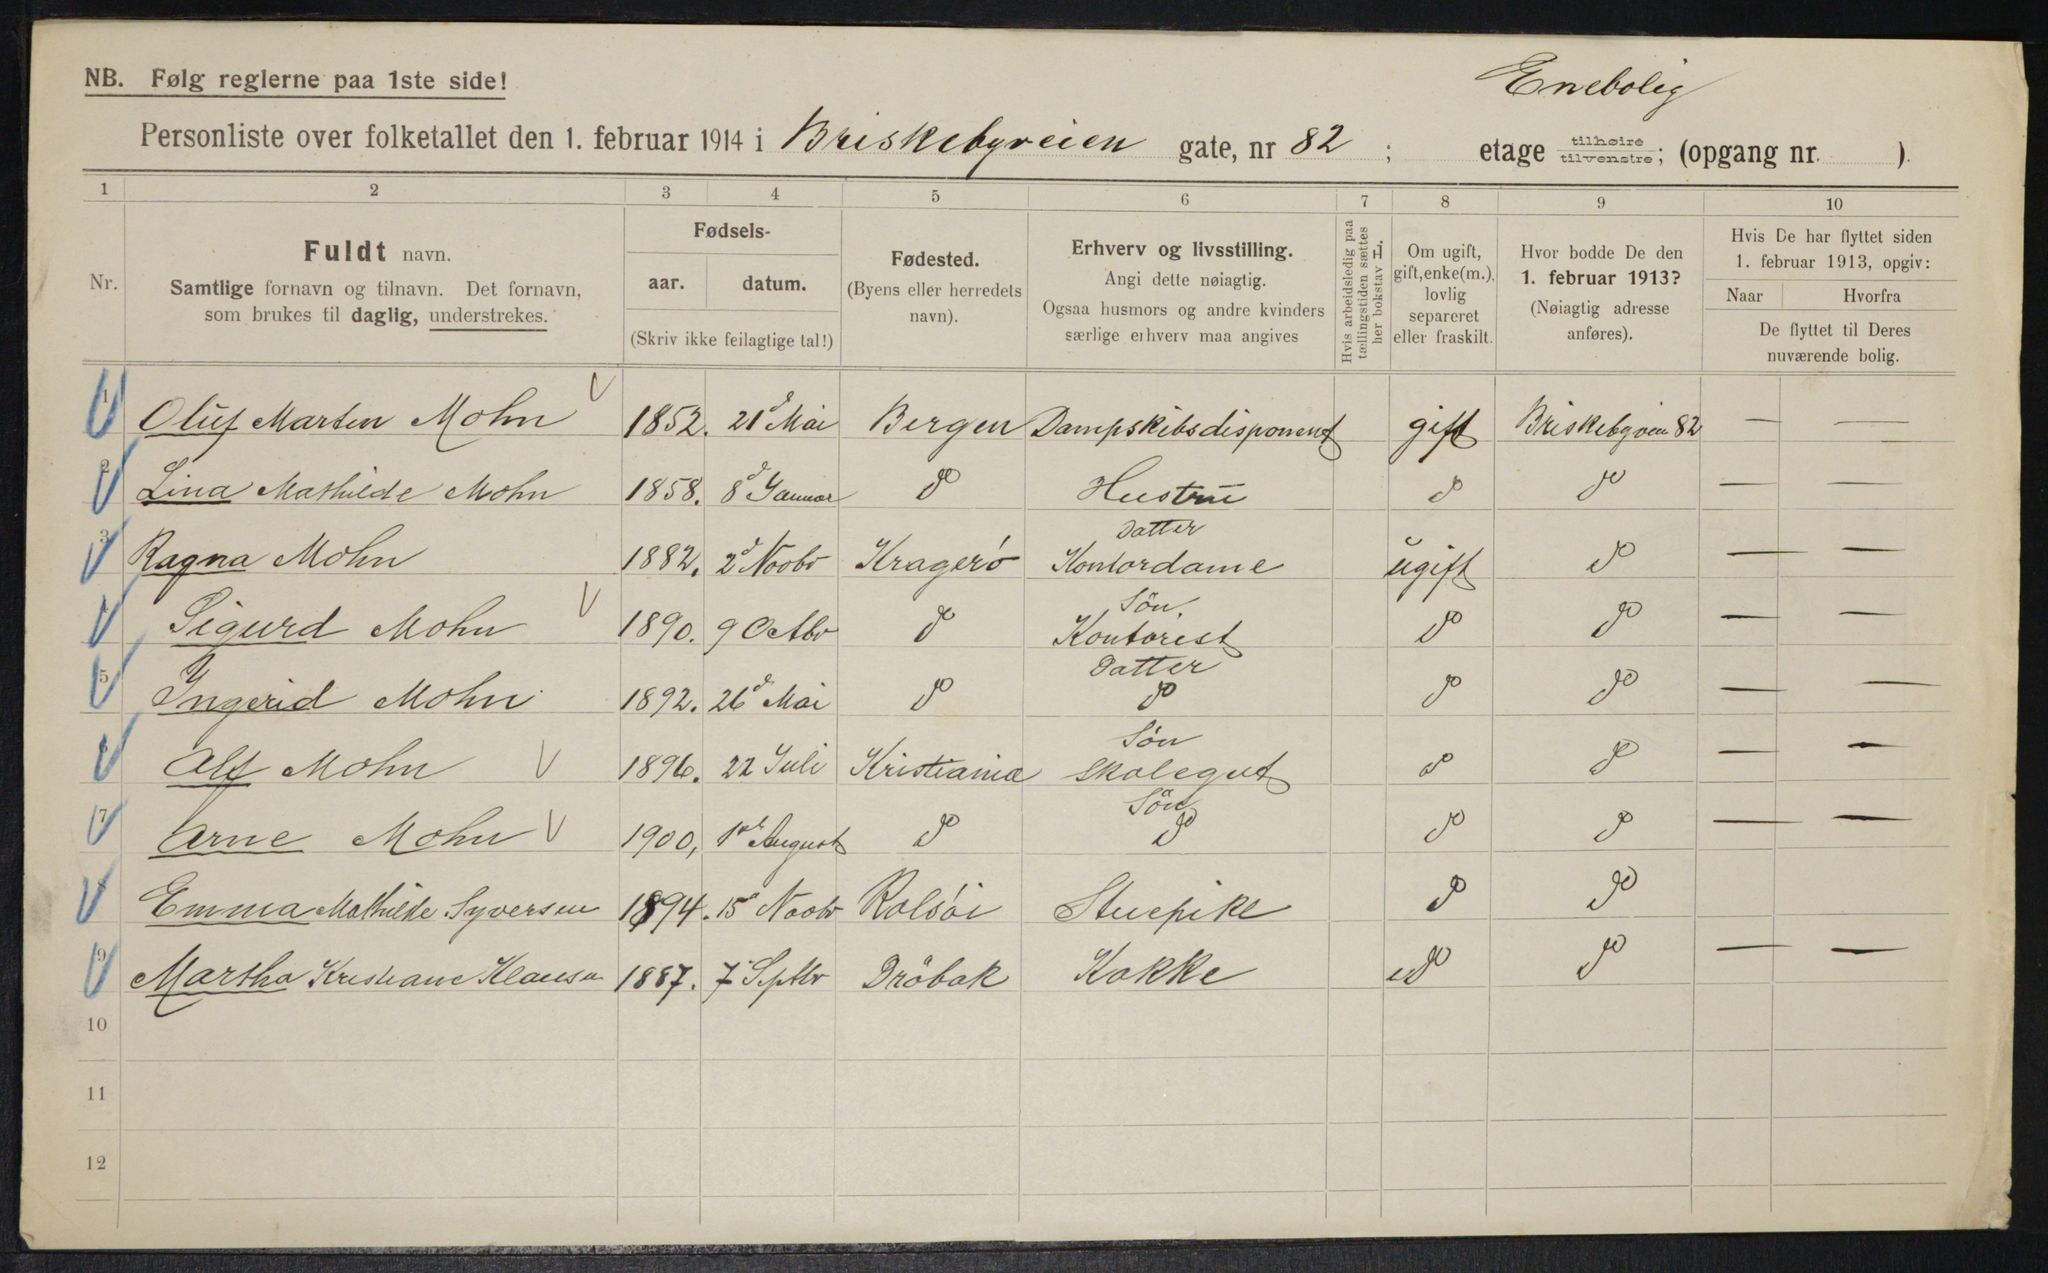 NB. Følg reglerne paa 1ste side!
Enebolig
Personliste over folketallet den 1. februar 1914 i Briskebyveien gate, nr 82 ; etage tilhøire tilvenstre; (opgang nr. ).
1 2 3 4 5 6 7 8 9 10
Nr.
Fuldt navn.
Samtlige fornavn og tilnavn. Det fornavn,
som brukes til daglig, understrekes.
Fødsels-
aar. datum.
(Skriv ikke feilagtige tal!)
Fødested.
(Byens eller herredets
navn).
Erhverv og livsstilling.
Angi dette nøiagtig.
Ogsaa husmors og andre kvinders
særlige erhverv maa angives
Hvis arbeidsledig paa
tællingstiden sættes
her bokstav L.
Om ugift,
gift, enke(m.),
lovlig
separeret
eller fraskilt.
Hvor bodde De den
1. februar 1913?
(Nøiagtig adresse
anføres).
Hvis De har flyttet siden
1. februar 1913, opgiv:
Naar Hvorfra
De flyttet til Deres
nuværende bolig.
1 Oluf Marten Mohn 1852. 21d Mai Bergen Dampskibsdisponent gift Briskebyveien 82 — —
2 Lina Mathilde Mohn 1858. 8d Januar do Hustru do do — —
3 Ragna Mohn 1882. 2d Novbr Kragerö Datter Kontordame ugift do — —
4 Sigurd Mohn 1890. 9 Octbr do Sön Kontorist do do — —
5 Ingerid Mohn 1892. 26d Mai do Datter do do do — —
6 Alf Mohn 1896. 22 Juli Kristiania Sön Skolegut do do — —
7 Arne Mohn 1900, 1st August do Sön do do do — —
8 Emma Mathilde Syversen 1894. 15d Novbr Rolsöi Stuepike do do
9 Martha Kristiane Klausen 1887. 7 Septbr Dröbak Kokke do do — —
10
11
12